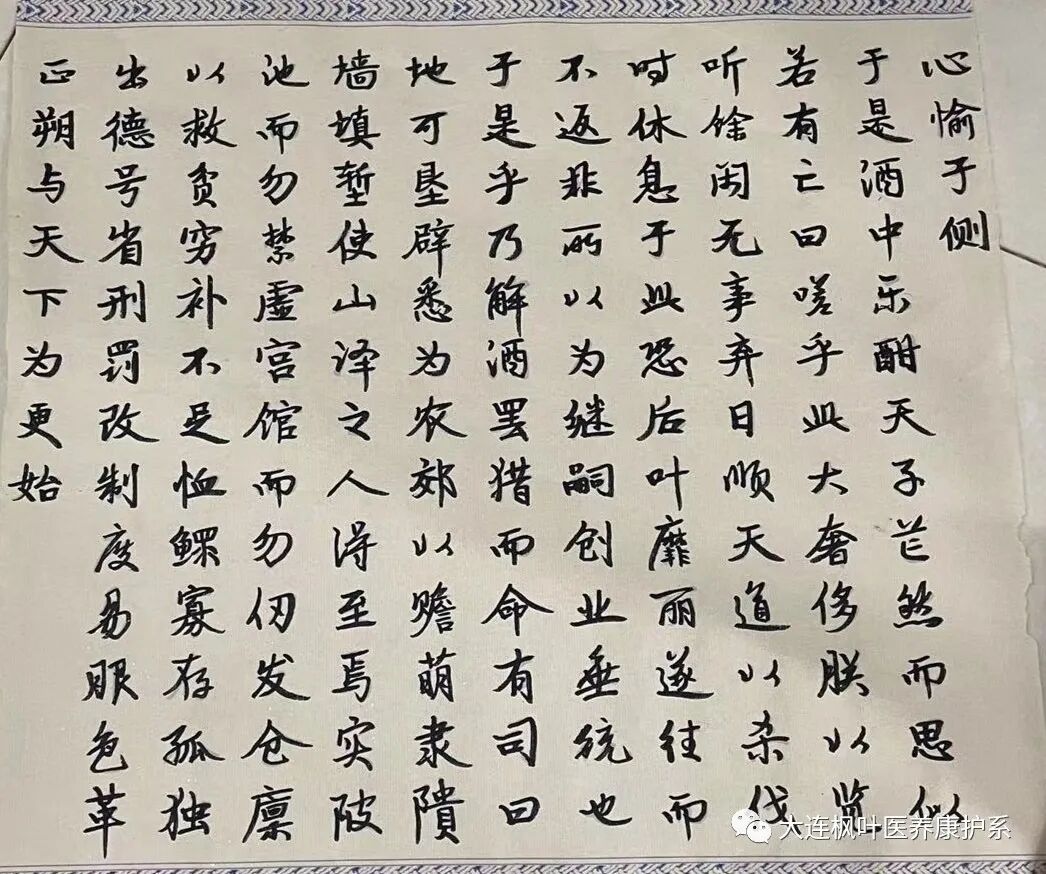 心愉于侧
于是酒中乐酣天子芒然而思似
若有亡曰嗟乎此大奢侈朕以览
听馀闲无事弃日顺天道以杀伐
时休息于此恐后叶靡丽遂往而
不返非所以为继嗣创业垂统也
于是乎乃解酒罢猎而命有司曰
地可垦辟悉为农郊以赡萌隶隤
墙填堑使山泽之人得至焉实陂
池而勿禁虚宫馆而勿仞发仓廪
以救贫穷补不足恤鳏寡存孤独
出德号省刑罚改制度易服色革
正朔与天下为更始
大连枫叶医养康护系